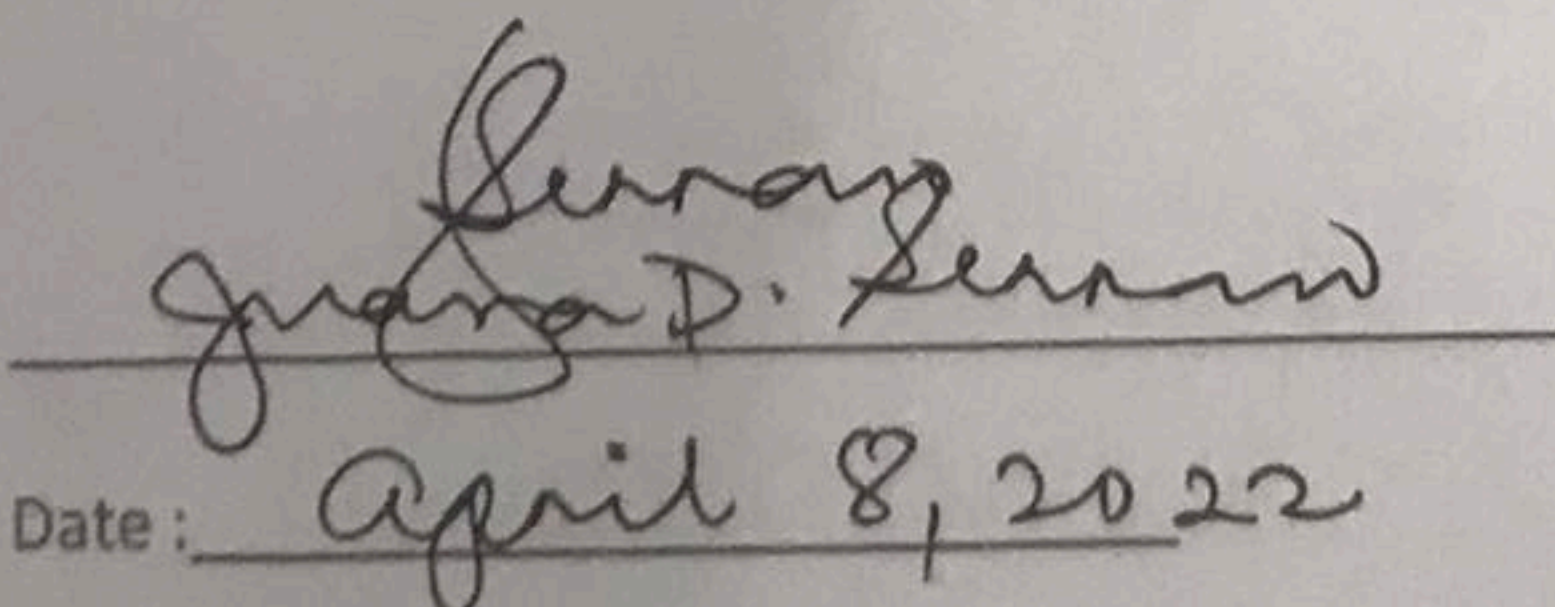 Serrano
Juana D. Serrano
Date : April 8, 2022